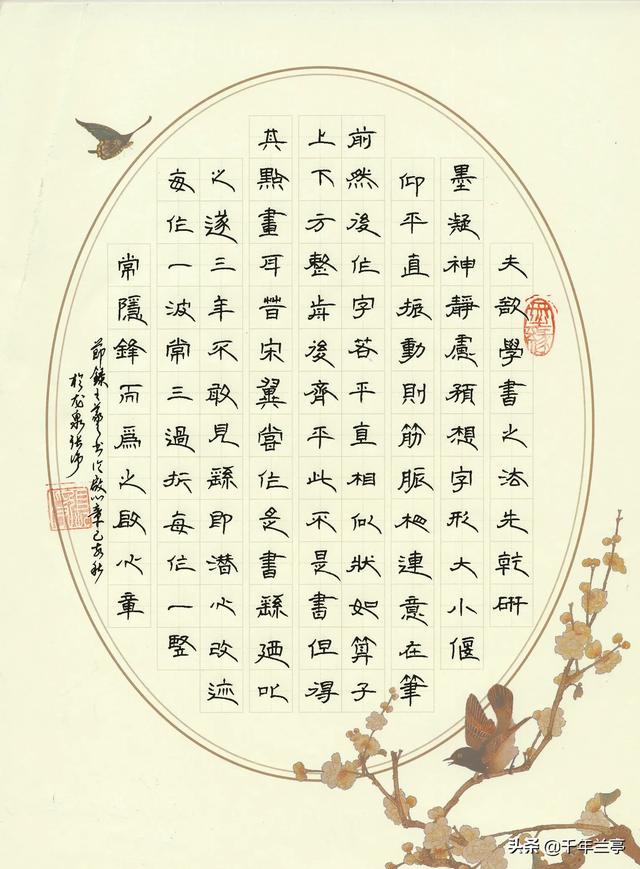 夫欲學書之法先乾研
墨凝神靜慮預想字形大小偃
仰平直振動則筋脈相連意在筆
前然後作字若平直相似狀如算子
上下方整歬後齊平此不是書但得
其點畫耳昔宋翼嘗作是書繇廼叱
之遂三年不敢見繇即潛心改迹
每作一波常三過折每作一豎
常隱鋒而爲之啟心章
節錄王羲之书论啟心章己亥秋
於龙泉
头条 @千年兰亭